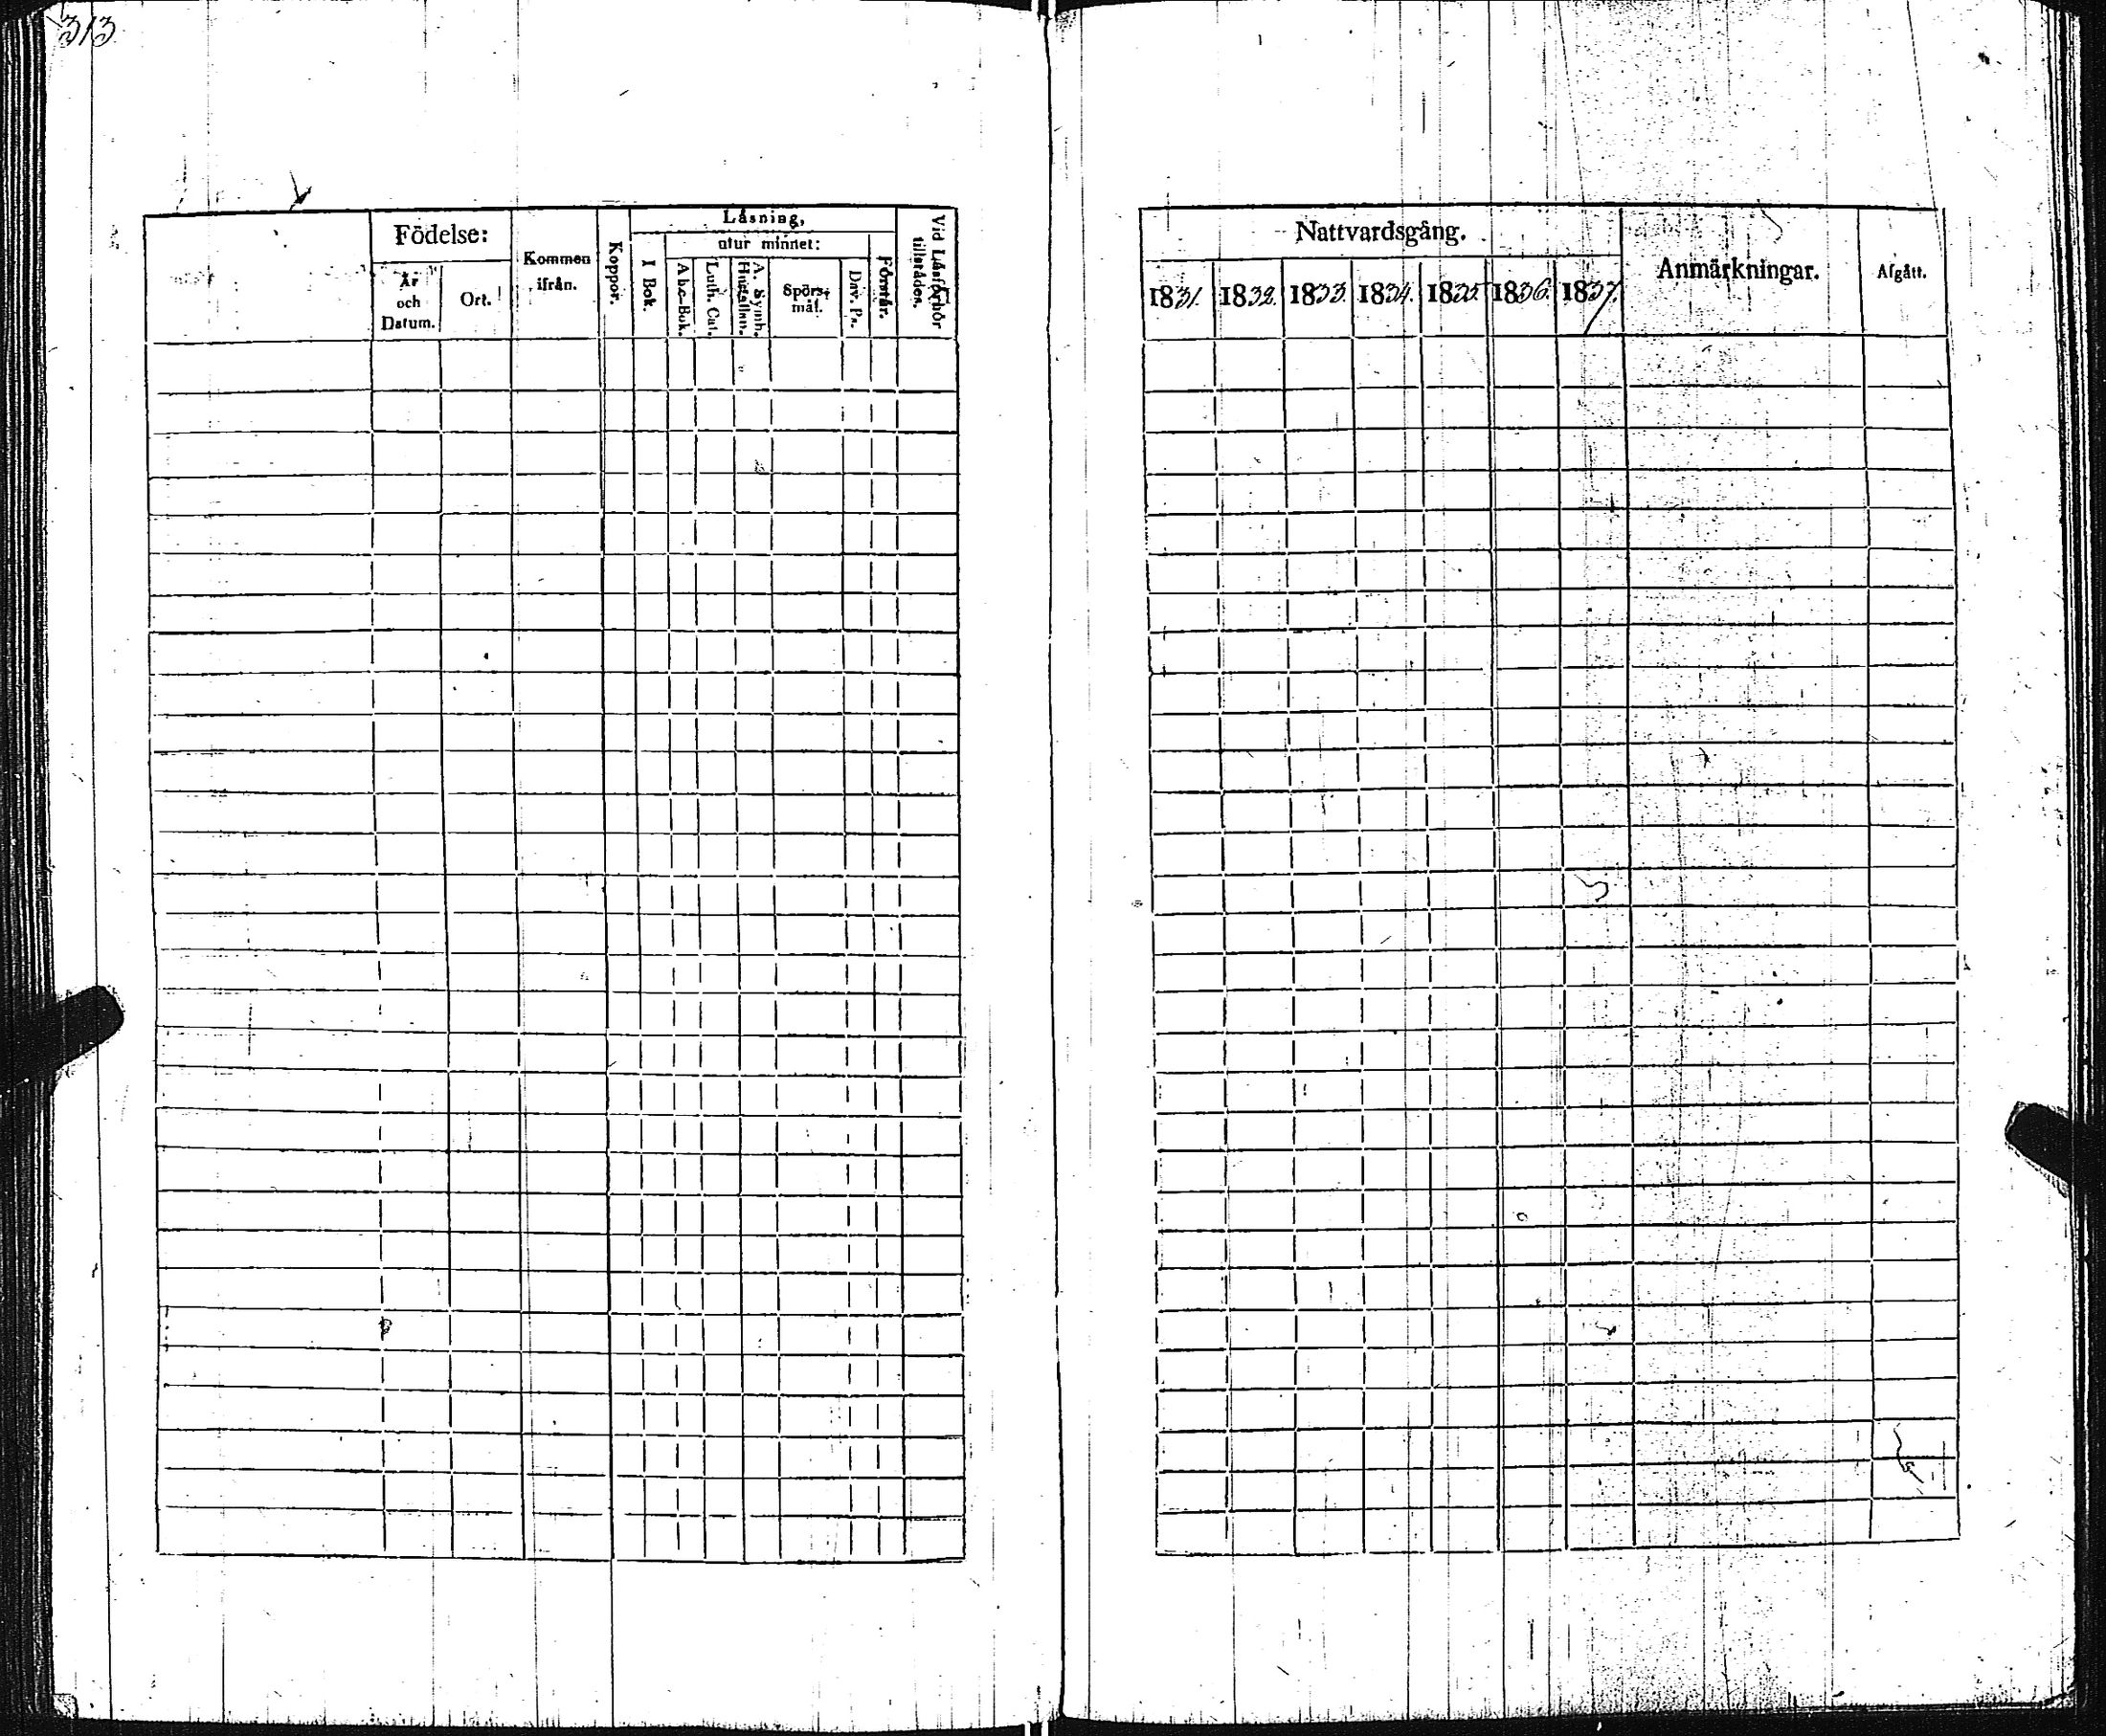 313
Födelse:
År
och
Datum.
Ort.
Kommen
ifrån.
Koppor.
Läsning,
I Bok.
utur minnet:
Abc-Bok.
Luth. Cat.
A. Symb.
Hustaflan.
Spörs-
mål.
Dav. Ps.
Förstår.
Vid Läsförhör
tillstädes.
Nattvardsgång.
1831. 1832. 1833. 1834. 1835. 1836. 1837.
Anmärkningar.
Afgått.